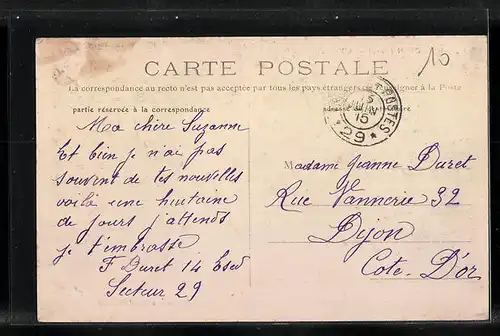 10
CARTE POSTALE
La correspondance au recto n'est pas acceptée par tous les pays étrangers se à la Poste
partie réservée à la correspondance
POSTES
15
JUIN
15
* 29 *
Ma chère Suzanne
Et bien je n'ai pas
souvent de tes nouvelles
voilà une huitaine
de jours j'attends
je t'embrasse
F Duret 14 Esed
Secteur 29
Madame Jeanne Duret
Rue Vannerie 32
Dijon
Cote-D'or